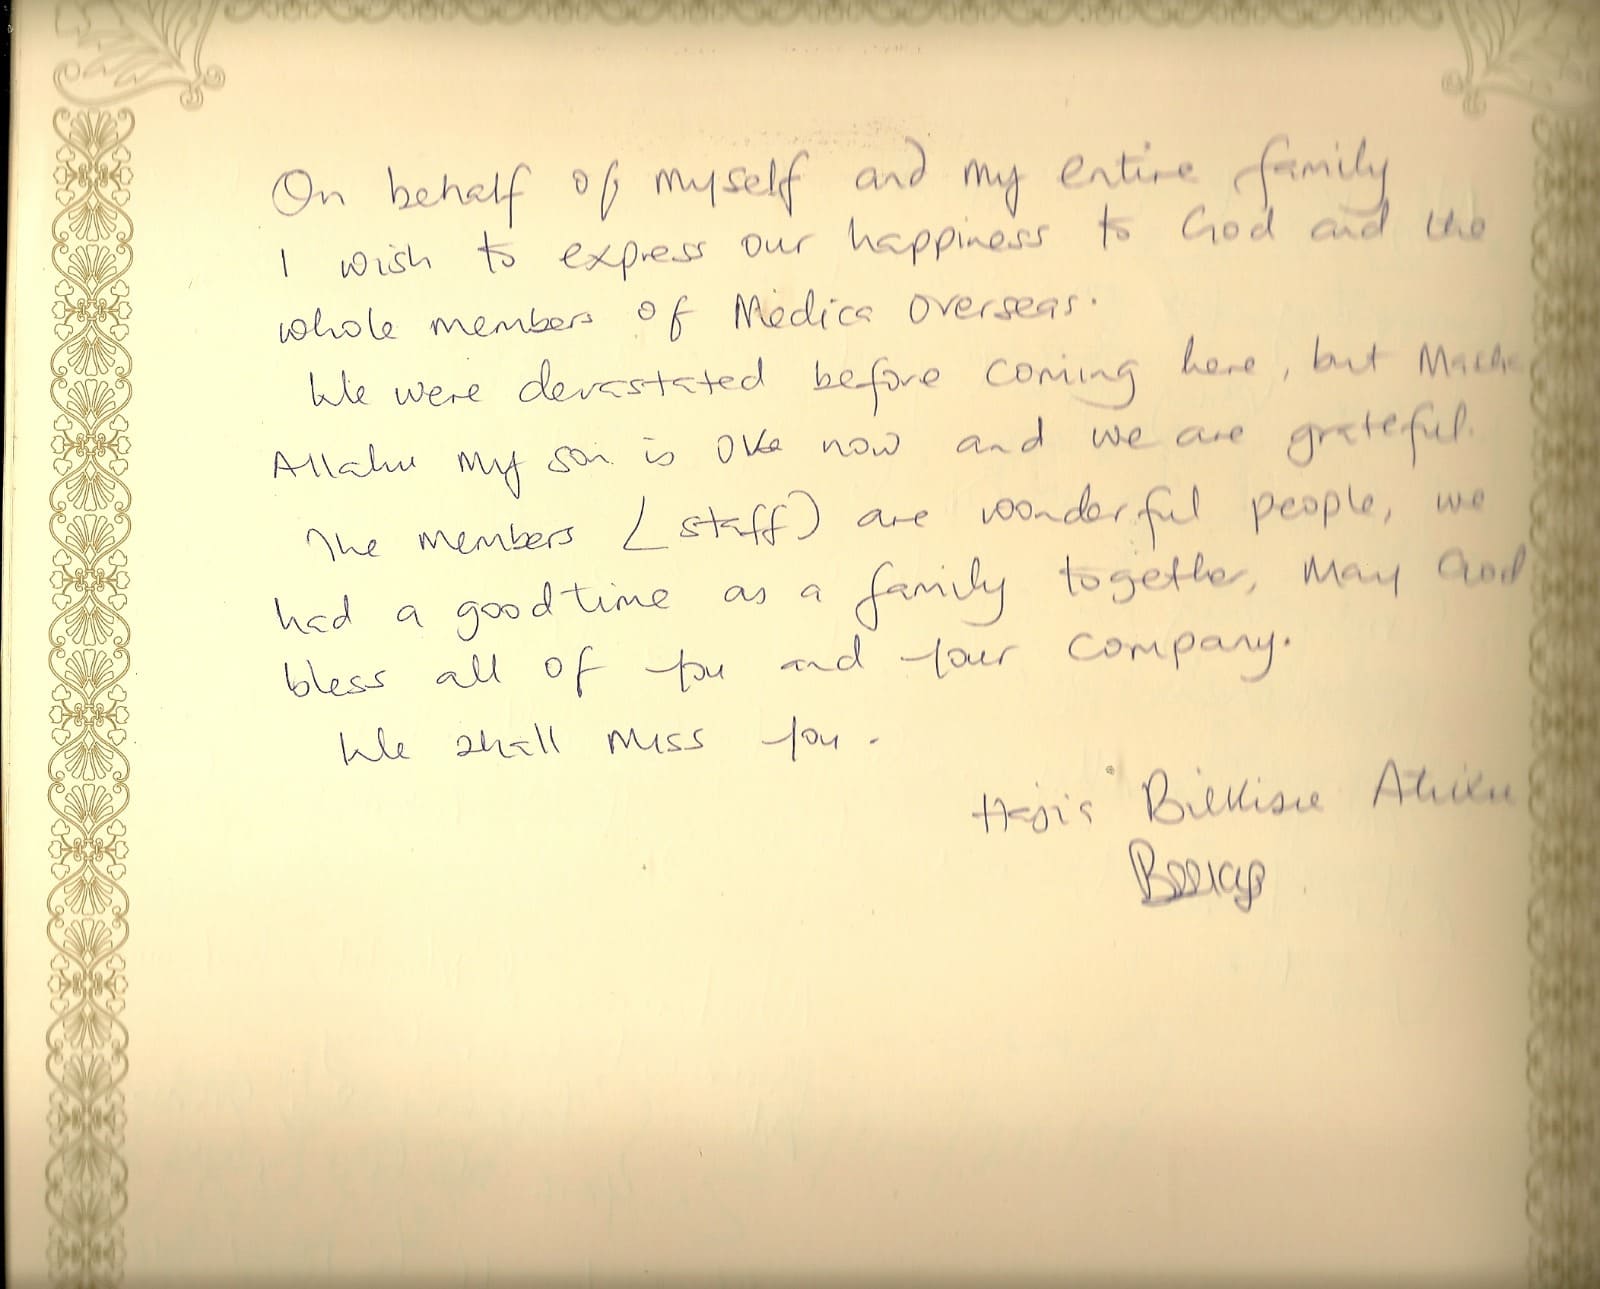 On behalf of myself and my entire family
I wish to express our happiness to God and the
whole members of Medica Overseas.
We were devastated before coming here, but Masha
Allahu my son is Oke now and we are grateful.
The members (staff) are wonderful people, we
had a good time as a family together, May God
bless all of you and your company.
We shall miss you.
Hajia Bilkisu Atiku